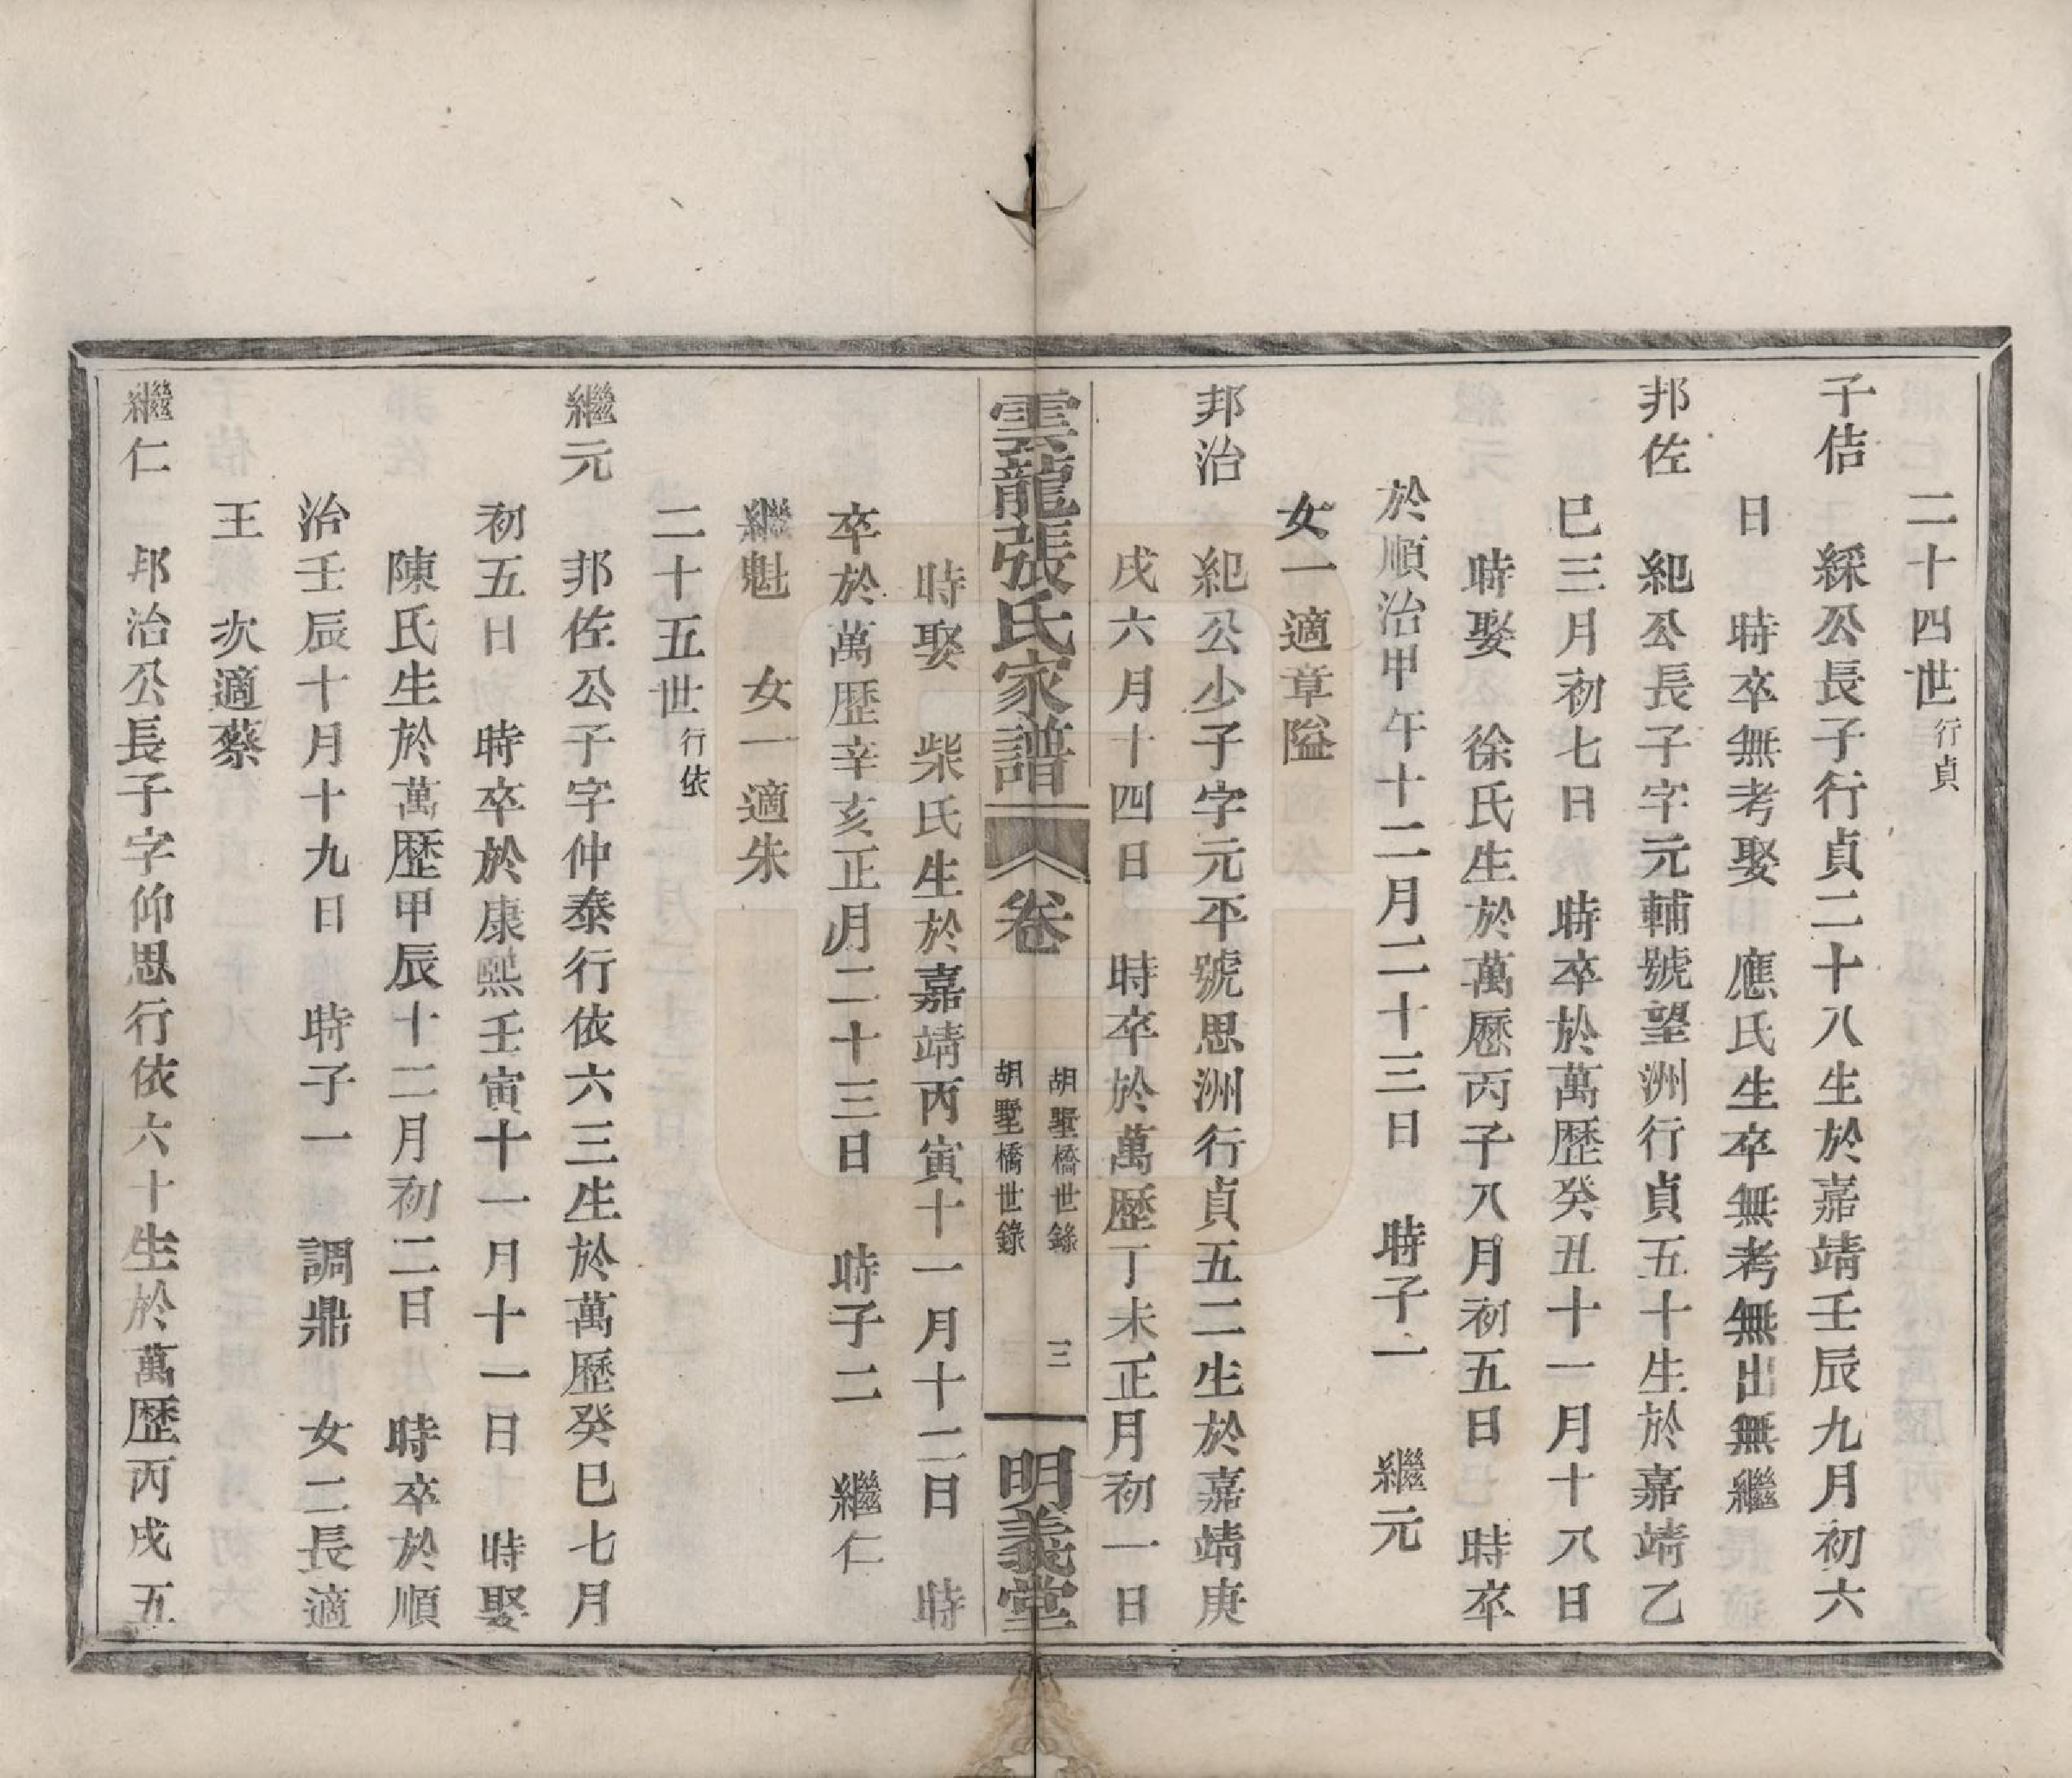 二十四世行貞
子佶 綵公長子行貞二十八生於嘉靖壬辰九月初六
日 時卒無考娶 應氏生卒無考無出無繼
邦佐 紀公長子字元輔號望洲行貞五十生於嘉靖乙
巳三月初七日 時卒於萬歷癸丑十一月十八日
時娶 徐氏生於萬歷丙子八月初五日 時卒
於順治甲午十二月二十三日 時子一 繼元
女一適章隘
邦治 紀公少子字元平號思洲行貞五二生於嘉靖庚
戌六月十四日 時卒於萬歷丁未正月初一日
雲龍張氏家譜 卷 胡墅橋世錄 三 明義堂
胡墅橋世錄
時娶 柴氏生於嘉靖丙寅十一月十二日 時
卒於萬歷辛亥正月二十三日 時子二 繼仁
繼魁 女一適朱
二十五世行依
繼元 邦佐公子字仲泰行依六三生於萬歷癸巳七月
初五日 時卒於康熙壬寅十一月十一日 時娶
陳氏生於萬歷甲辰十二月初二日 時卒於順
治壬辰十月十九日 時子一 調鼎 女二長適
王 次適蔡
繼仁 邦治公長子字仰思行依六十生於萬歷丙戌五